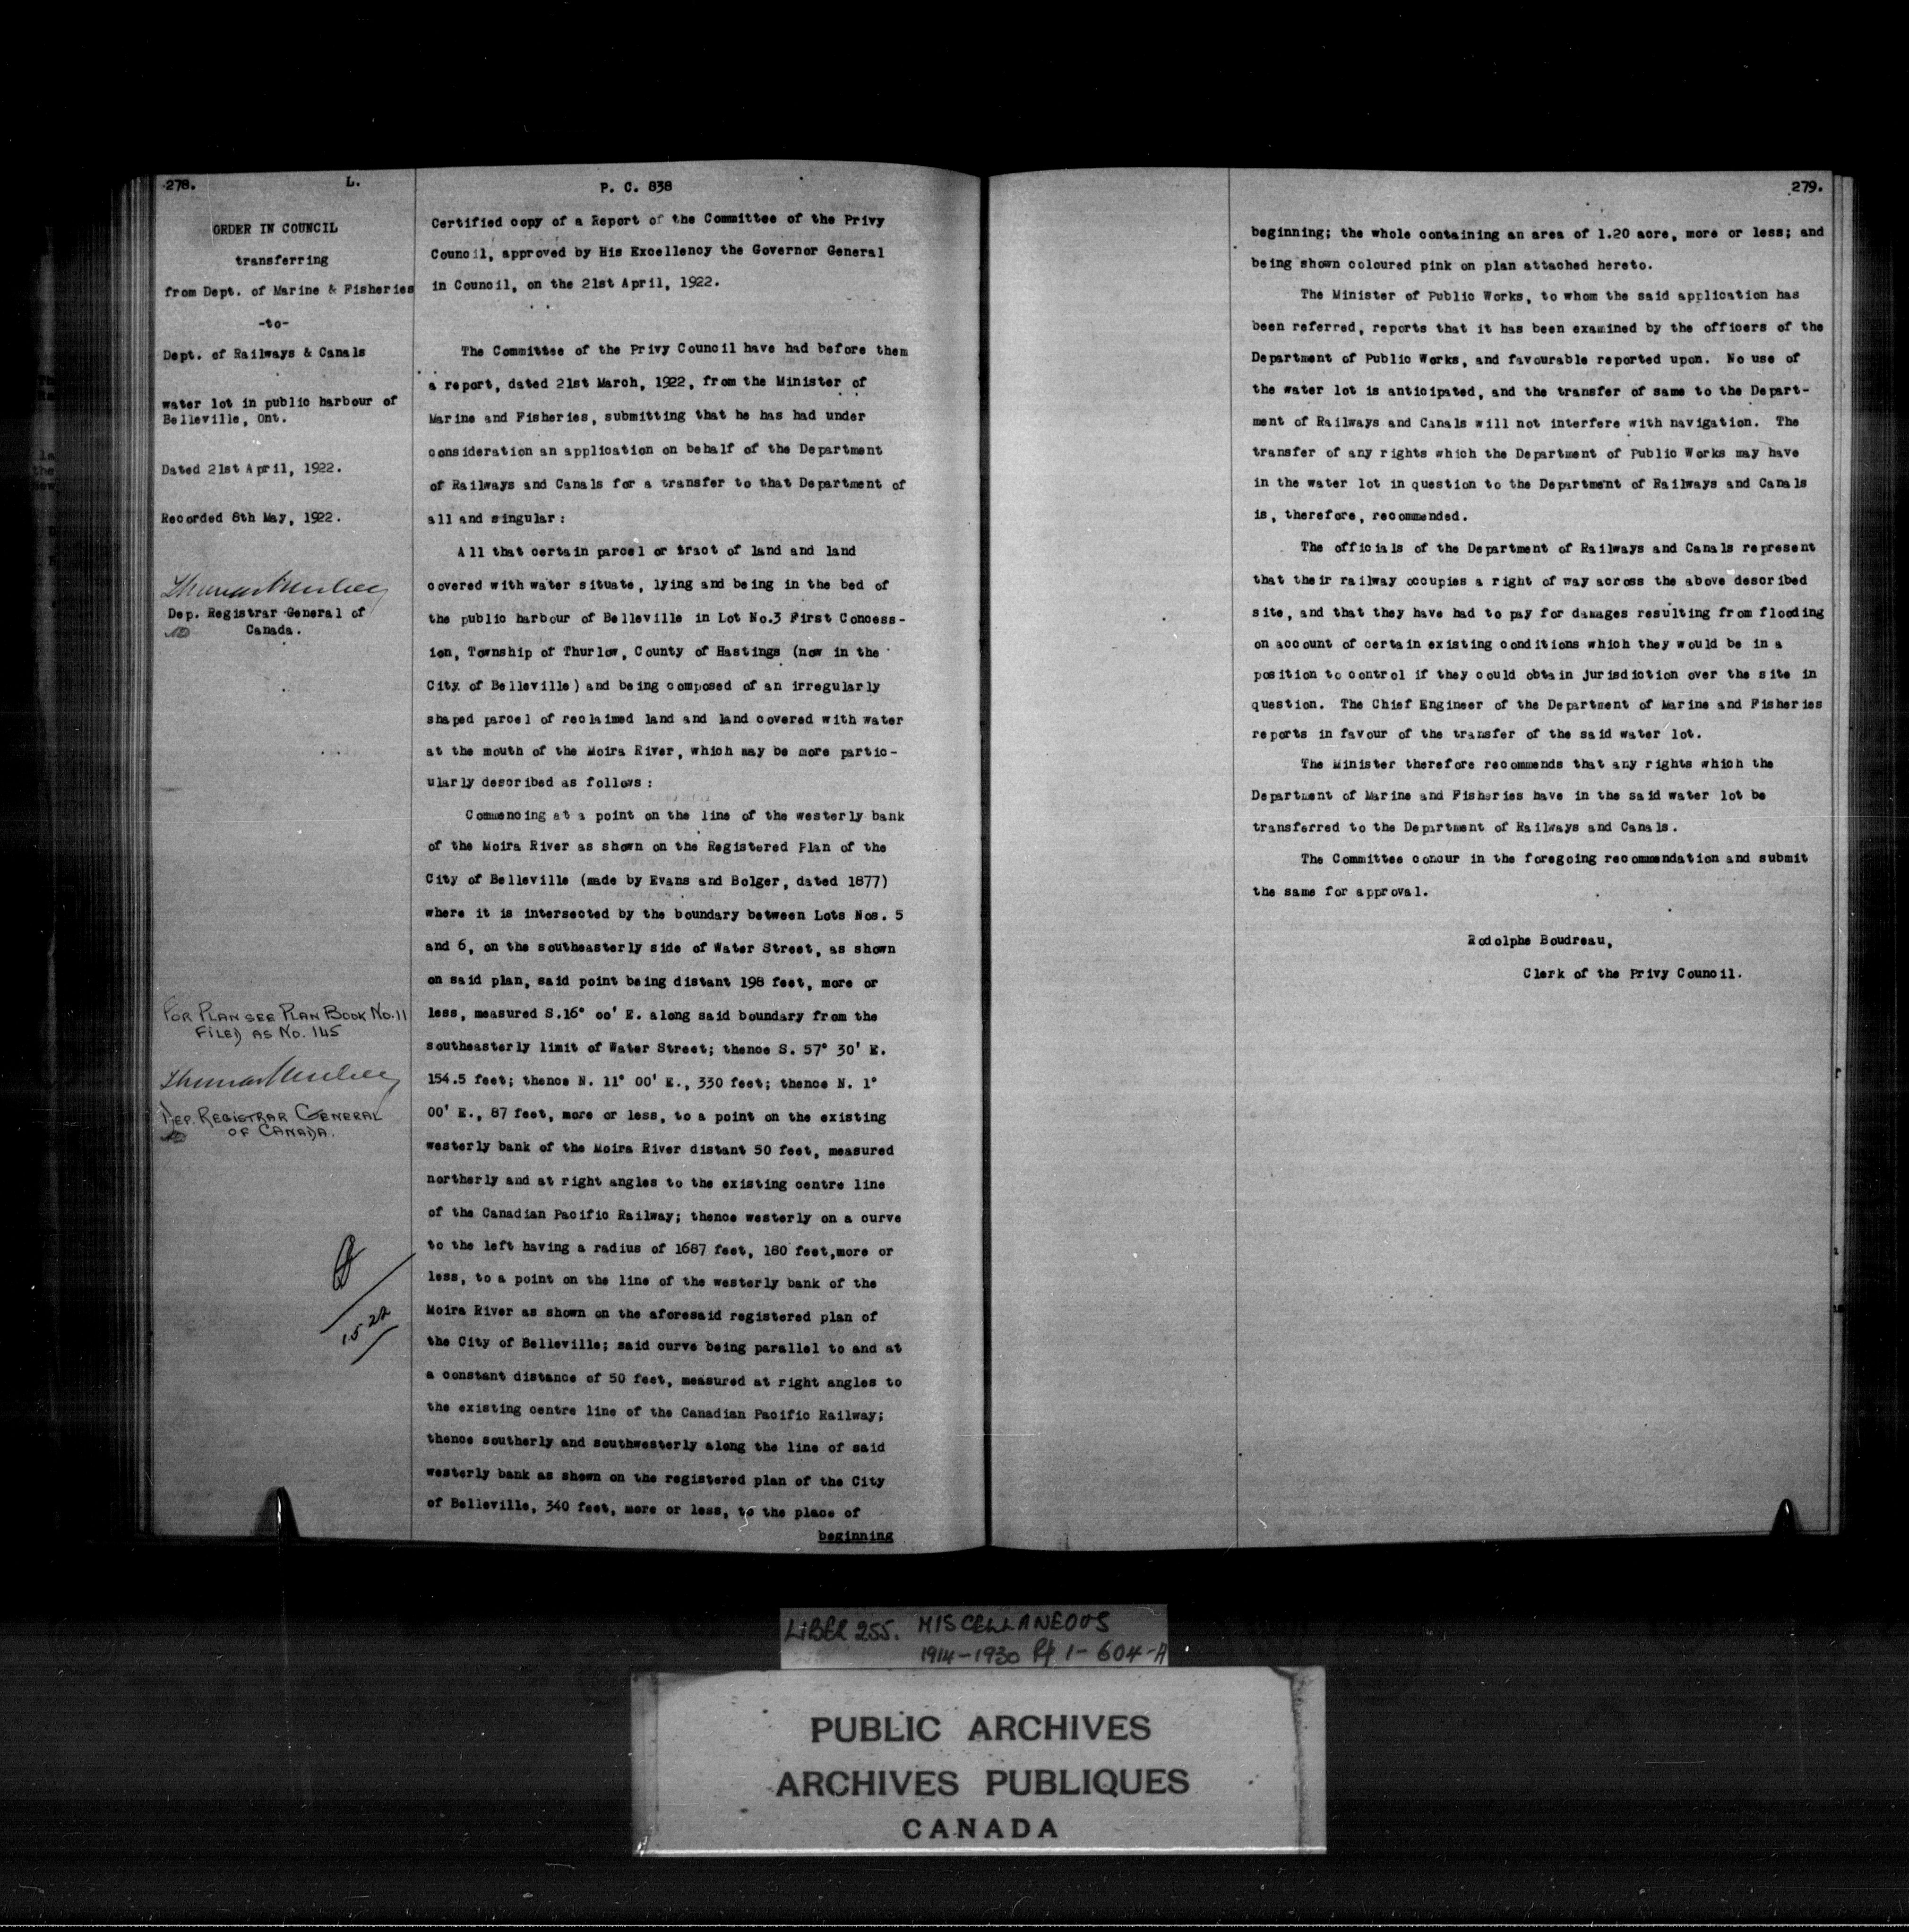 278.
L.
ORDER IN COUNCIL
transferring
from Dept. of Marine & Fisheries
-to-
Dept. of Railways & Canals
water lot in public harbour of
Belleville, Ont.
Dated 21st April, 1922.
Recorded 8th May, 1922.
Dep. Registrar General of
Canada.
FOR PLAN SEE PLAN BOOK NO. 11
FILED AS NO. 145
DEP. REGISTRAR GENERAL
OF CANADA.
P. C. 838
Certified copy of a Report of the Committee of the Privy
Council, approved by His Excellency the Governor General
in Council, on the 21st April, 1922.
The Committee of the Privy Council have had before them
a report, dated 21st March, 1922, from the Minister of
Marine and Fisheries, submitting that he has had under
consideration an application on behalf of the Department
of Railways and Canals for a transfer to that Department of
all and singular:
All that certain parcel or tract of land and land
covered with water situate, lying and being in the bed of
the public harbour of Belleville in Lot No.3 First Concess-
ion, Township of Thurlow, County of Hastings (now in the
City of Belleville) and being composed of an irregularly
shaped parcel of reclaimed land and land covered with water
at the mouth of the Moira River, which may be more partic-
ularly described as follows:
Commencing at a point on the line of the westerly bank
of the Moira River as shown on the Registered Plan of the
City of Belleville (made by Evans and Bolger, dated 1877)
where it is intersected by the boundary between Lots Nos. 5
and 6, on the southeasterly side of Water Street, as shown
on said plan, said point being distant 198 feet, more or
less, measured S.16° 00' E. along said boundary from the
southeasterly limit of Water Street; thence S. 57° 30' E.
154.5 feet; thence N. 11° 00' E., 330 feet; thence N. 1°
00' E., 87 feet, more or less, to a point on the existing
westerly bank of the Moira River distant 50 feet, measured
northerly and at right angles to the existing centre line
of the Canadian Pacific Railway; thence westerly on a curve
to the left having a radius of 1687 feet, 180 feet,more or
less, to a point on the line of the westerly bank of the
Moira River as shown on the aforesaid registered plan of
the City of Belleville; said curve being parallel to and at
a constant distance of 50 feet, measured at right angles to
the existing centre line of the Canadian Pacific Railway;
thence southerly and southwesterly along the line of said
westerly bank as shown on the registered plan of the City
of Belleville, 340 feet, more or less, to the place of
beginning
279.
beginning; the whole containing an area of 1.20 acre, more or less; and
being shown coloured pink on plan attached hereto.
The Minister of Public Works, to whom the said application has
been referred, reports that it has been examined by the officers of the
Department of Public Works, and favourable reported upon. No use of
the water lot is anticipated, and the transfer of same to the Depart-
ment of Railways and Canals will not interfere with navigation. The
transfer of any rights which the Department of Public Works may have
in the water lot in question to the Department of Railways and Canals
is, therefore, recommended.
The officials of the Department of Railways and Canals represent
that their railway occupies a right of way across the above described
site, and that they have had to pay for damages resulting from flooding
on account of certain existing conditions which they would be in a
position to control if they could obtain jurisdiction over the site in
question. The Chief Engineer of the Department of Marine and Fisheries
reports in favour of the transfer of the said water lot.
The Minister therefore recommends that any rights which the
Department of Marine and Fisheries have in the said water lot be
transferred to the Department of Railways and Canals.
The Committee concur in the foregoing recommendation and submit
the same for approval.
Rodolphe Boudreau,
Clerk of the Privy Council.
LIBER 255. MISCELLANEOUS
1914-1930 Pp 1-604-A
PUBLIC ARCHIVES
ARCHIVES PUBLIQUES
CANADA